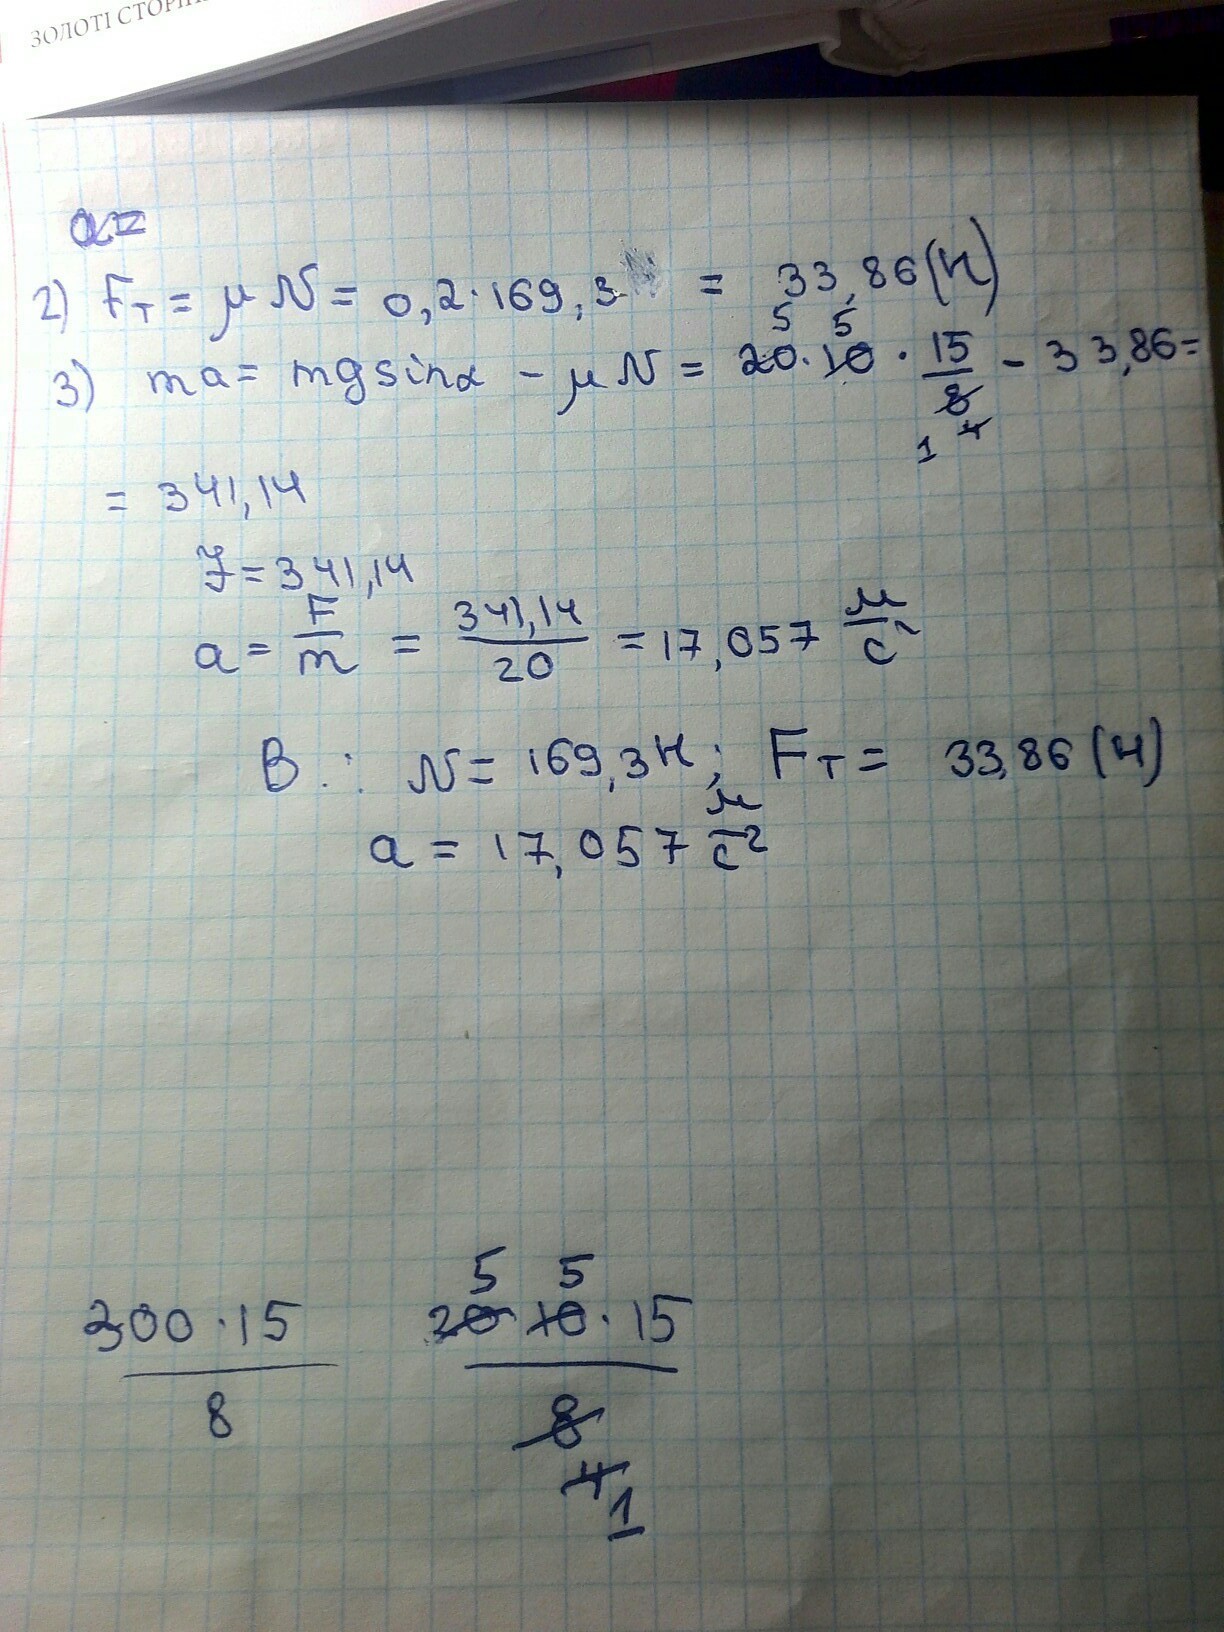 ЗОЛОТІ
a=
2) Fт = μ N = 0,2·169,3 = 33,86 (Н)
5 5
3) ma = mg sinα - μ N = 20·10·15/8 - 33,86 =
1 4
= 341,14
F = 341,14
a = F/m = 341,14/20 = 17,057 м/с²
В.: N = 169,3 Н; Fт = 33,86 (Н)
a = 17,057 м/с²
5 5
200·15 20 10·15
8 8
4
1